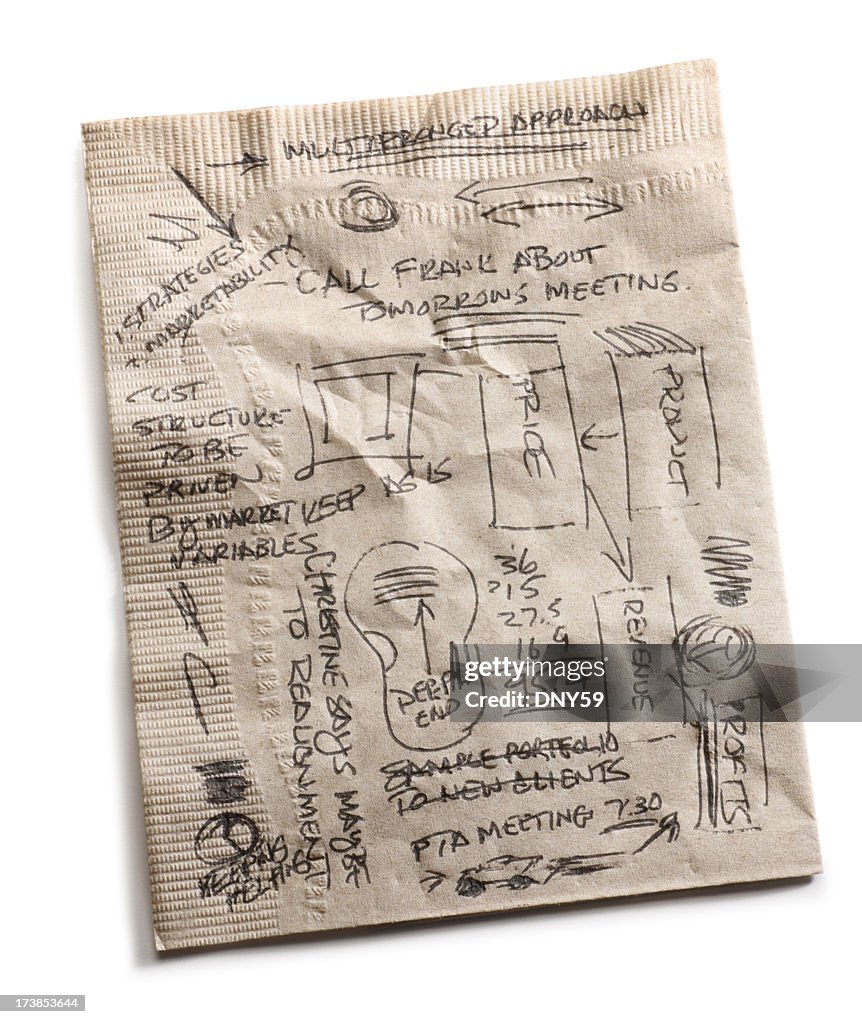 MULTIPRONGED APPROACH
STRATEGIES
MARKETABILITY
- CALL FRANK ABOUT
TOMORROWS MEETING.
COST
STRUCTURE
TO BE
DRIVEN
By MARKET
VARIABLES
KEEP
15
PRICE
PRODUCT
CHRISTINE SAYS MAYBE
TO REALIGNMENT
36
15
27.5
16
DEEP
END
REVENUE
PROFITS
SAMPLE PORTFOLIO
TO NEW CLIENTS
PTA MEETING 7:30
KEEPING
gettyimages®
Credit: DNY59
173853644